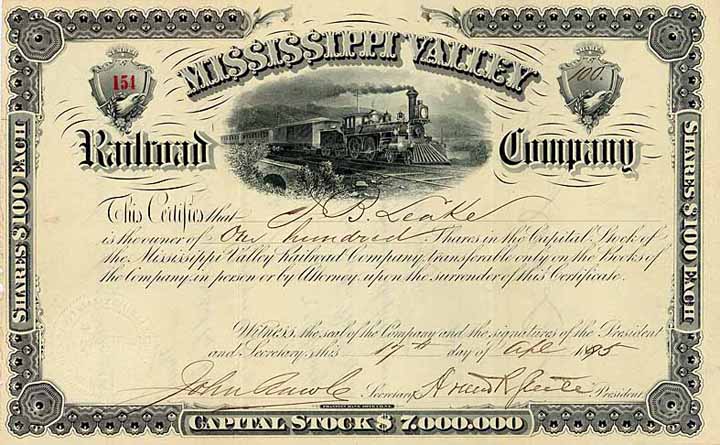 MISSISSIPPI VALLEY
NUMBER
154
SHARES
100.
Railroad Company
SHARES $100 EACH
SHARES $100 EACH
This Certifies that J B. Leake
is the owner of One hundred Shares in the Capital Stock of
the Mississippi Valley Railroad Company, transferable only on the Books of
the Company, in person or by Attorney upon the surrender of this Certificate.
Witness the seal of the Company and the signatures of the President
and Secretary, this 17th day of Apl 1885
John Secretary President
CAPITAL STOCK $ 7,000,000